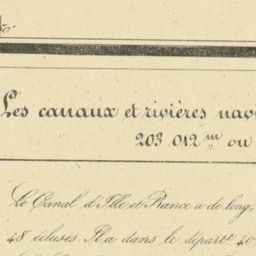 Les canaux et rivières nav
203.012 m ou
Le Canal d'Ille et Rance a de long.
48 écluses Il a dans le départt 40